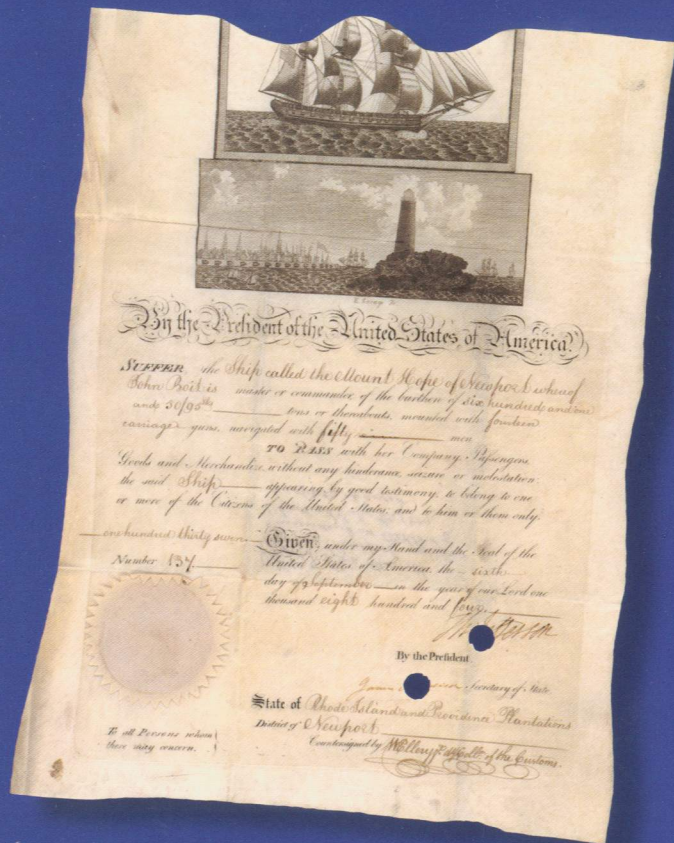 By the President of the United States of America.
SUFFER the Ship called the Mount Hope of Newport whereof
John Boit is master or commander of the burthen of six hundred and one
and 50/95ths tons or thereabouts, mounted with fourteen
carriage guns, navigated with fifty men
TO PASS with her Company Passengers
Goods and Merchandize without any hinderance, seizure or molestation:
the said Ship appearing by good testimony to belong to one
or more of the Citizens of the United States; and to him or them only.
one hundred thirty seven
Given under my Hand and the Seal of the
Number 137
United States of America, the sixth
day of September in the year of our Lord one
thousand eight hundred and four
Th Jefferson
By the President
James Secretary of State
State of Rhode Island and Providence Plantations
District of Newport
To all Persons whom
these may concern.
Countersigned by W Ellery Collr. of the Customs.